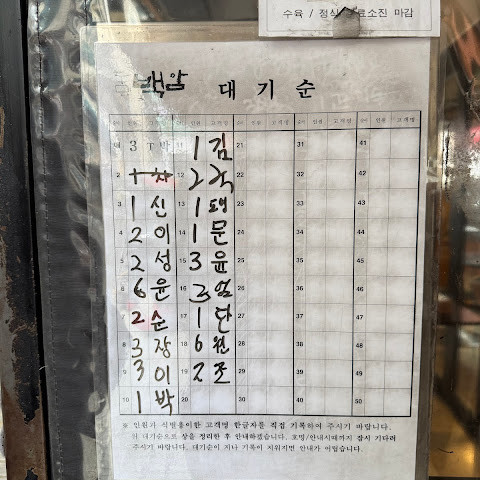 수육 / 정식 재료소진 마감
대 기 순
순서 인원 고객명 순서 인원 고객명 순서 인원 고객명 순서 인원 고객명 순서 인원 고객명
3 박 1 김 21 31 41
2 1 차 12 2 22 32 42
3 1 신 13 1 23 33 43
4 2 이 14 1 문 24 34 44
5 2 성 15 3 윤 25 35 45
6 6 윤 16 3 엄 26 36 46
7 2 순 17 1 단 27 37 47
8 3 장 18 6 원 28 38 48
9 3 이 19 2 조 29 39 49
10 1 박 20 30 40 50
※ 인원과 식별용이한 고객명 한글자를 직접 기록하여 주시기 바랍니다.
대기순으로 상을 정리한 후 안내하겠습니다. 호명/안내시까지 잠시 기다려
주시기 바랍니다. 대기순이 지나 기록이 지워지면 안내가 어렵습니다.